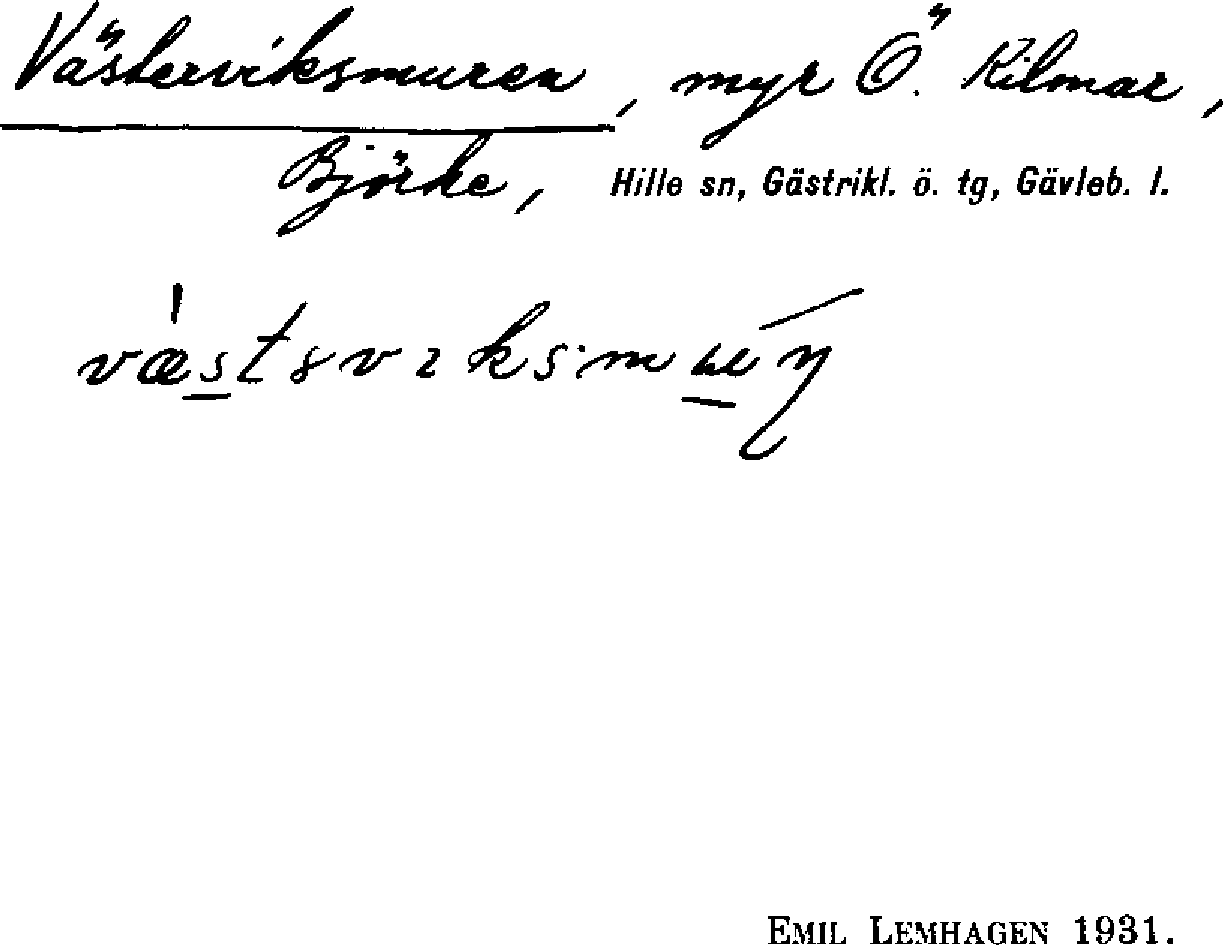 Västerviksmuren, myr Ö. Kilmar,
Björke, Hille sn, Gästrikl. ö. tg, Gävleb. l.
EMIL LEMHAGEN 1931.